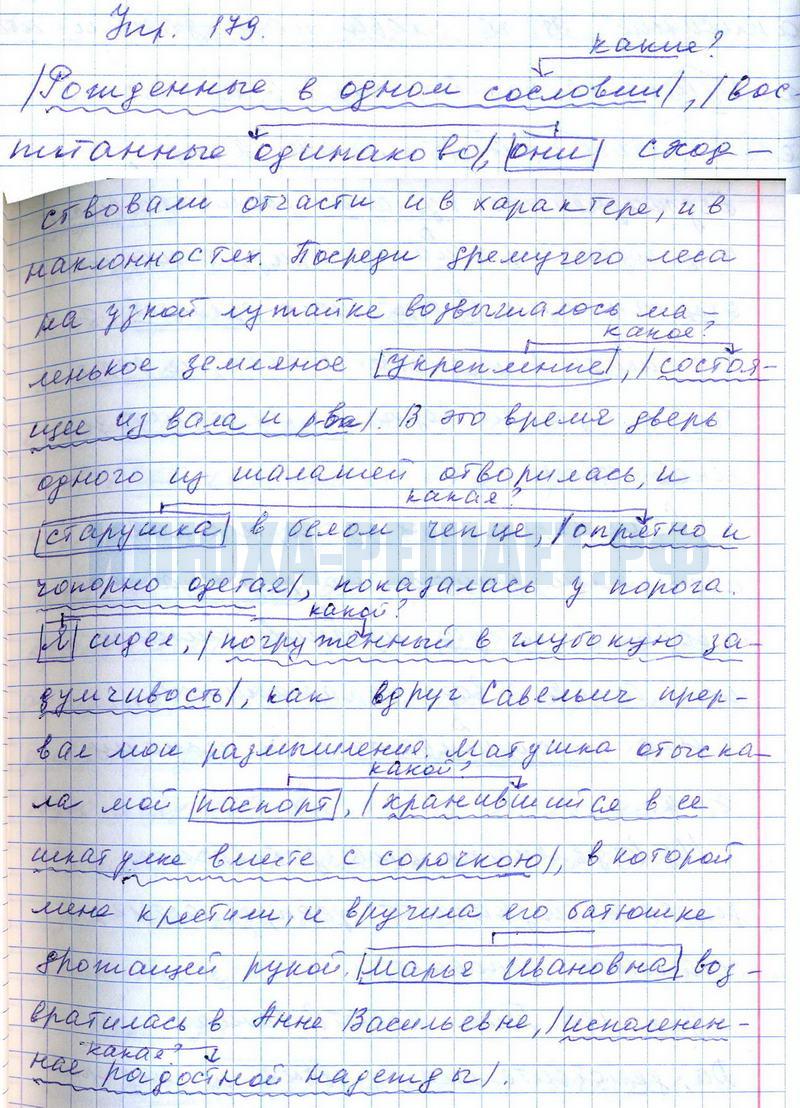 Упр. 179.
какие?
|Рожденные в одном сословии|, |вос-
питанные одинаково|, |они| сход-
ствовали отчасти и в характере, и в
наклонностях. Посреди дремучего леса
на узкой лужайке возвышалось ма-
какое?
ленькое земляное |укрепление|, |состоя-
щее из вала и рва|. В это время дверь
одного из шалашей отворилась, и
какая?
|старушка| в белом чепце, |опрятно и
чопорно одетая|, показалась у порога.
какой?
|Я| сидел, |погруженный в глубокую за-
думчивость|, как вдруг Савельич прер-
вал мои размышления. Матушка отыска-
какой?
ла мой |паспорт|, |хранившийся в ее
шкатулке вместе с сорочкою|, в которой
меня крестили, и вручила его батюшке
дрожащей рукой. |Марья Ивановна| воз-
вратилась в Анне Васильевне, |исполенен-
какая?
ная радостной надежды|.